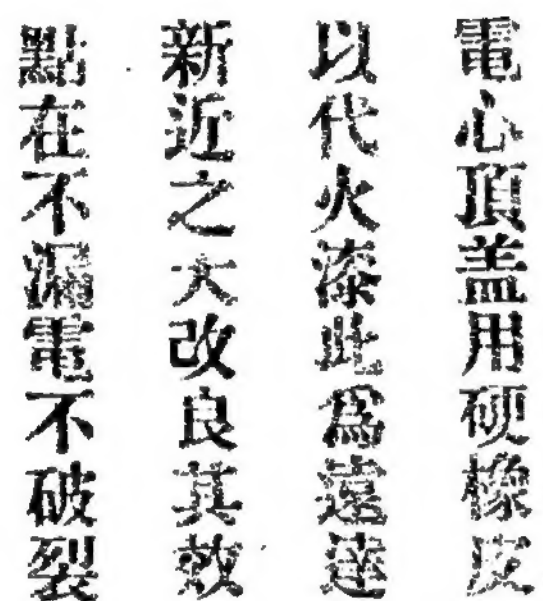 電心頂盖用硬橡皮
以代火漆此爲遠達
新近之大改良其效
點在不漏電不破裂